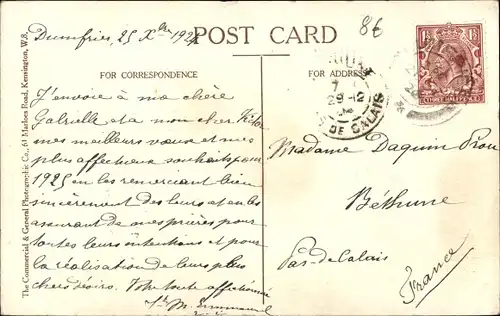 Dumfries, 25 Xbre 1924
POST CARD
8€
FOR CORRESPONDENCE
FOR ADDRESS
29-12
DE CALAIS
THREE HALFPENCE
J'envoie à ma chère
Gabrielle et à mon cher
mes meilleurs voeux et mes
plus affectueux souhaits pour
1925 en les remerciant bien
sincèrement des leurs et en les
assurant de mes prières pour
toutes leurs intentions et pour
la réalisation de leurs plus
chers désirs. Votre toute affectionnée
Sr M. Emmanuel
Madame Daquin
Béthune
Pas-de-Calais
France
The Commercial & General Photographic Co., 61 Marloes Road, Kensington, W.8.